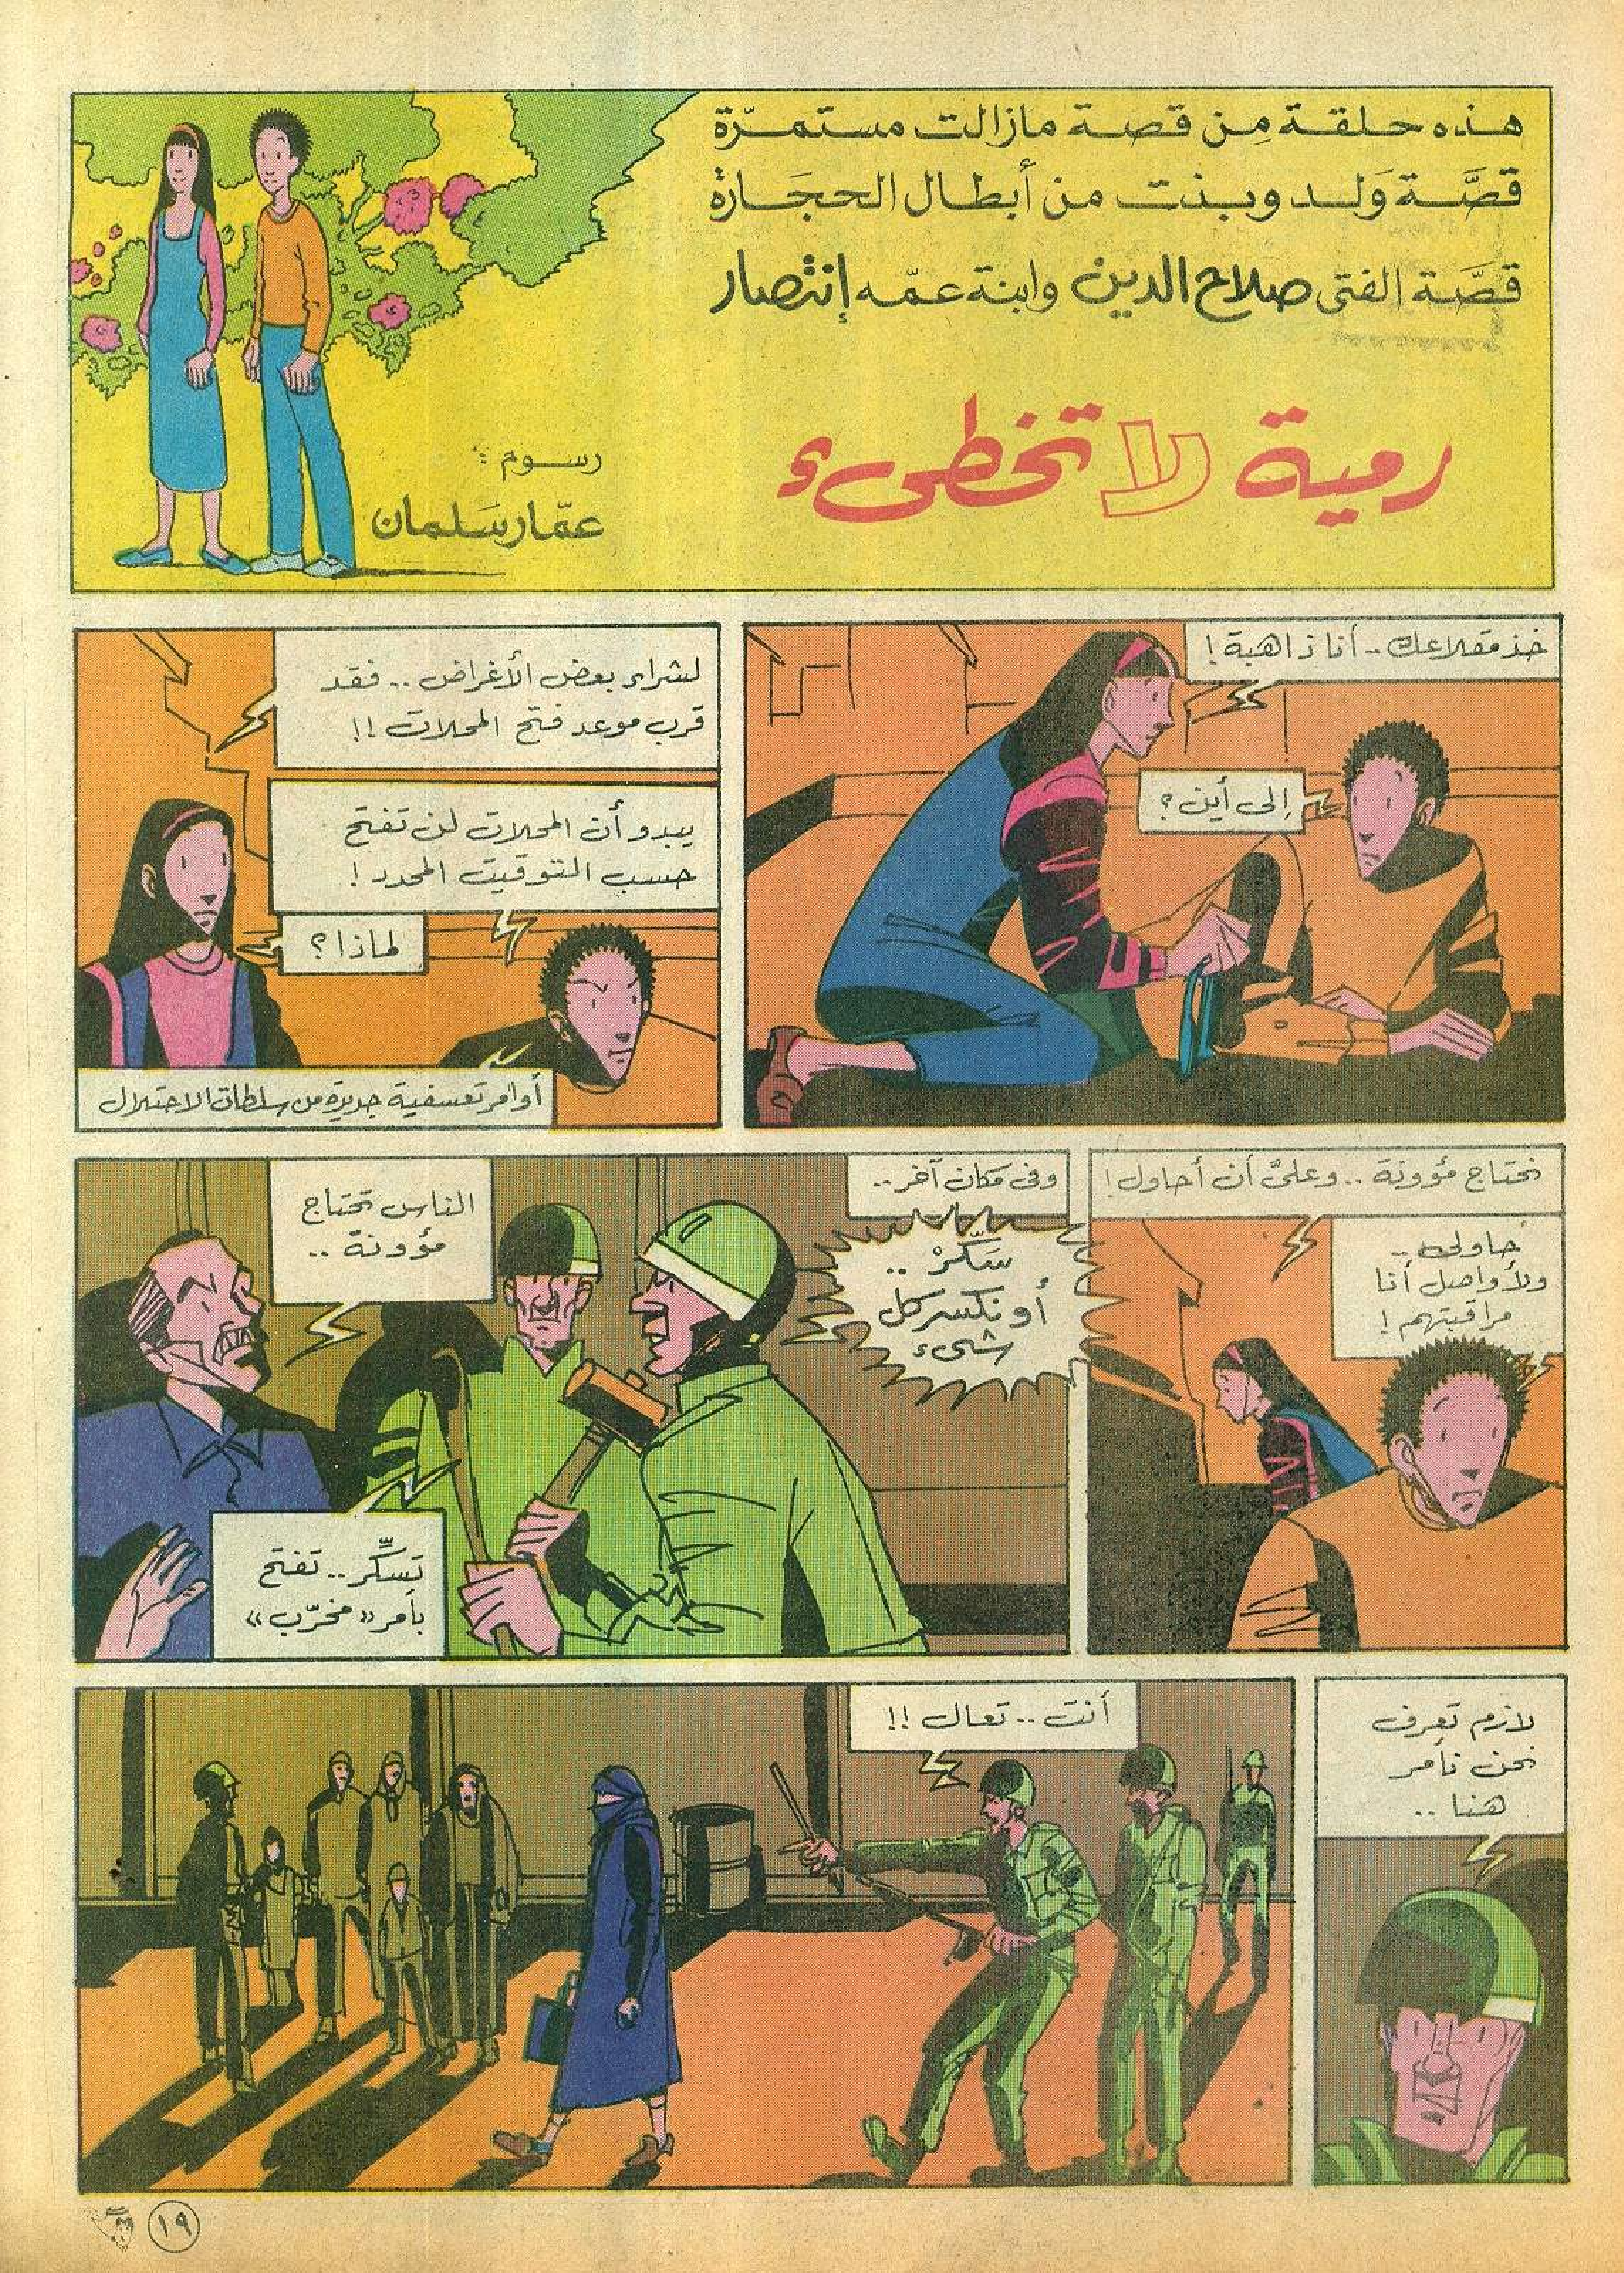 هذه حلقة مِن قصة مازالت مستمرّة
قصَّة وَلد وبنت من أبطال الحجَارة
قصَّة الفتى صلاح الدين وابنة عمّه إنتصار
رمية لا تخطىء
رسوم :
عمّار سَلمان
خذ مقلاعك .. أنا ذاهبة !
إلى أين ؟
لشراء بعض الأغراض .. فقد
قرب موعد فتح المحلات !!
يبدو أن المحلات لن تفتح
حسب التوقيت المحدد !
لماذا ؟
أوامر تعسفية جديدة من سلطات الاحتلال
نحتاج مؤونة .. وعليَّ أن أحاول !
حاولي ..
ولأواصل أنا
مراقبتهم !
وفي مكان آخر ..
سَكّرْ ..
أو نكسر كل
شيء
الناس تحتاج
مؤونة ..
تسَكِّر .. تفتح
بأمر « مخرّب »
لازم تعرف
نحن نأمر
هنا ..
أنت .. تعال !!
١٩